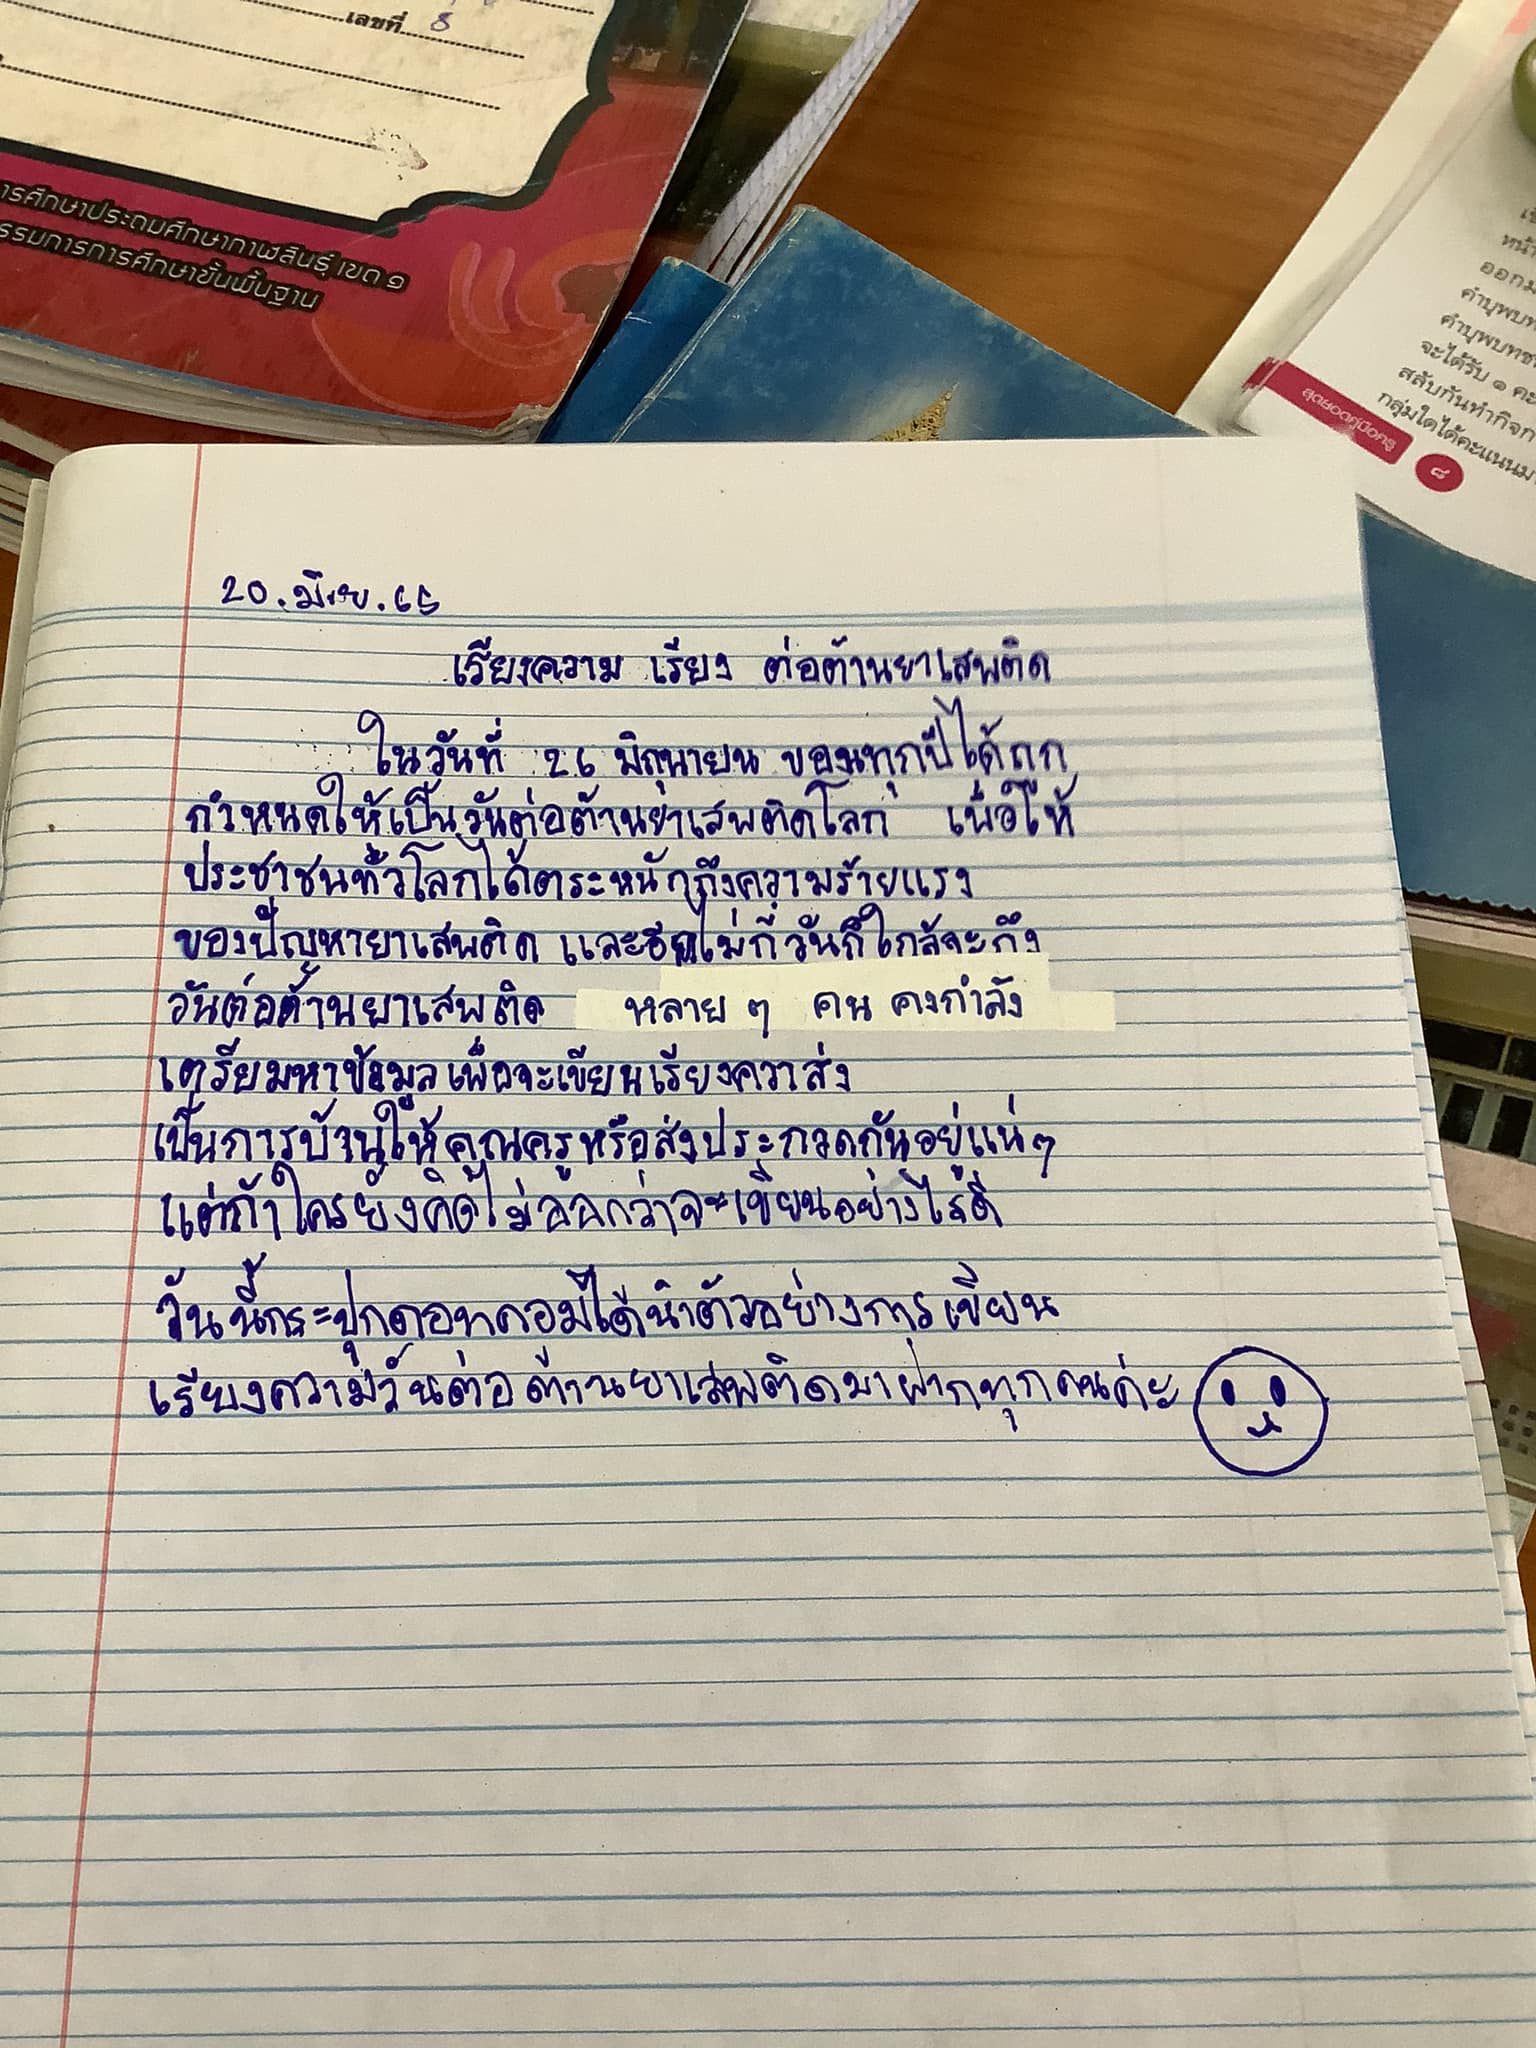 เลขที่ 8
การศึกษาประถมศึกษากาฬสินธุ์ เขต ๑
รรมการการศึกษาขั้นพื้นฐาน
หน้า
ออกม
คำบุพบท
คำบุพบทช
จะได้รับ ๑ คะ
สลับกันทำกิจก
กลุ่มใดได้คะแนนมา
สุดยอดคู่มือครู ๘
20.มิ.ย.65
เรียงความ เรียง ต่อต้านยาเสพติด
ในวันที่ 26 มิถุนายน ของทุกปีได้ถูก
กำหนดให้เป็นวันต่อต้านยาเสพติดโลก เพื่อให้
ประชาชนทั่วโลกได้ตระหนักถึงความร้ายแรง
ของปัญหายาเสพติด และอีกไม่กี่วันก็ใกล้จะถึง
วันต่อต้านยาเสพติด หลาย ๆ คน คงกำลัง
เตรียมหาข้อมูลเพื่อจะเขียนเรียงควาส่ง
เป็นการบ้านให้คุณครูหรือส่งประกวดกันอยู่แน่ๆ
แต่ถ้าใครยังคิดไม่ออกว่าจะเขียนอย่างไรดี
วันนี้กระปุกดอทคอมได้นำตัวอย่างการเขียน
เรียงความวันต่อต้านยาเสพติดมาฝากทุกคนค่ะ